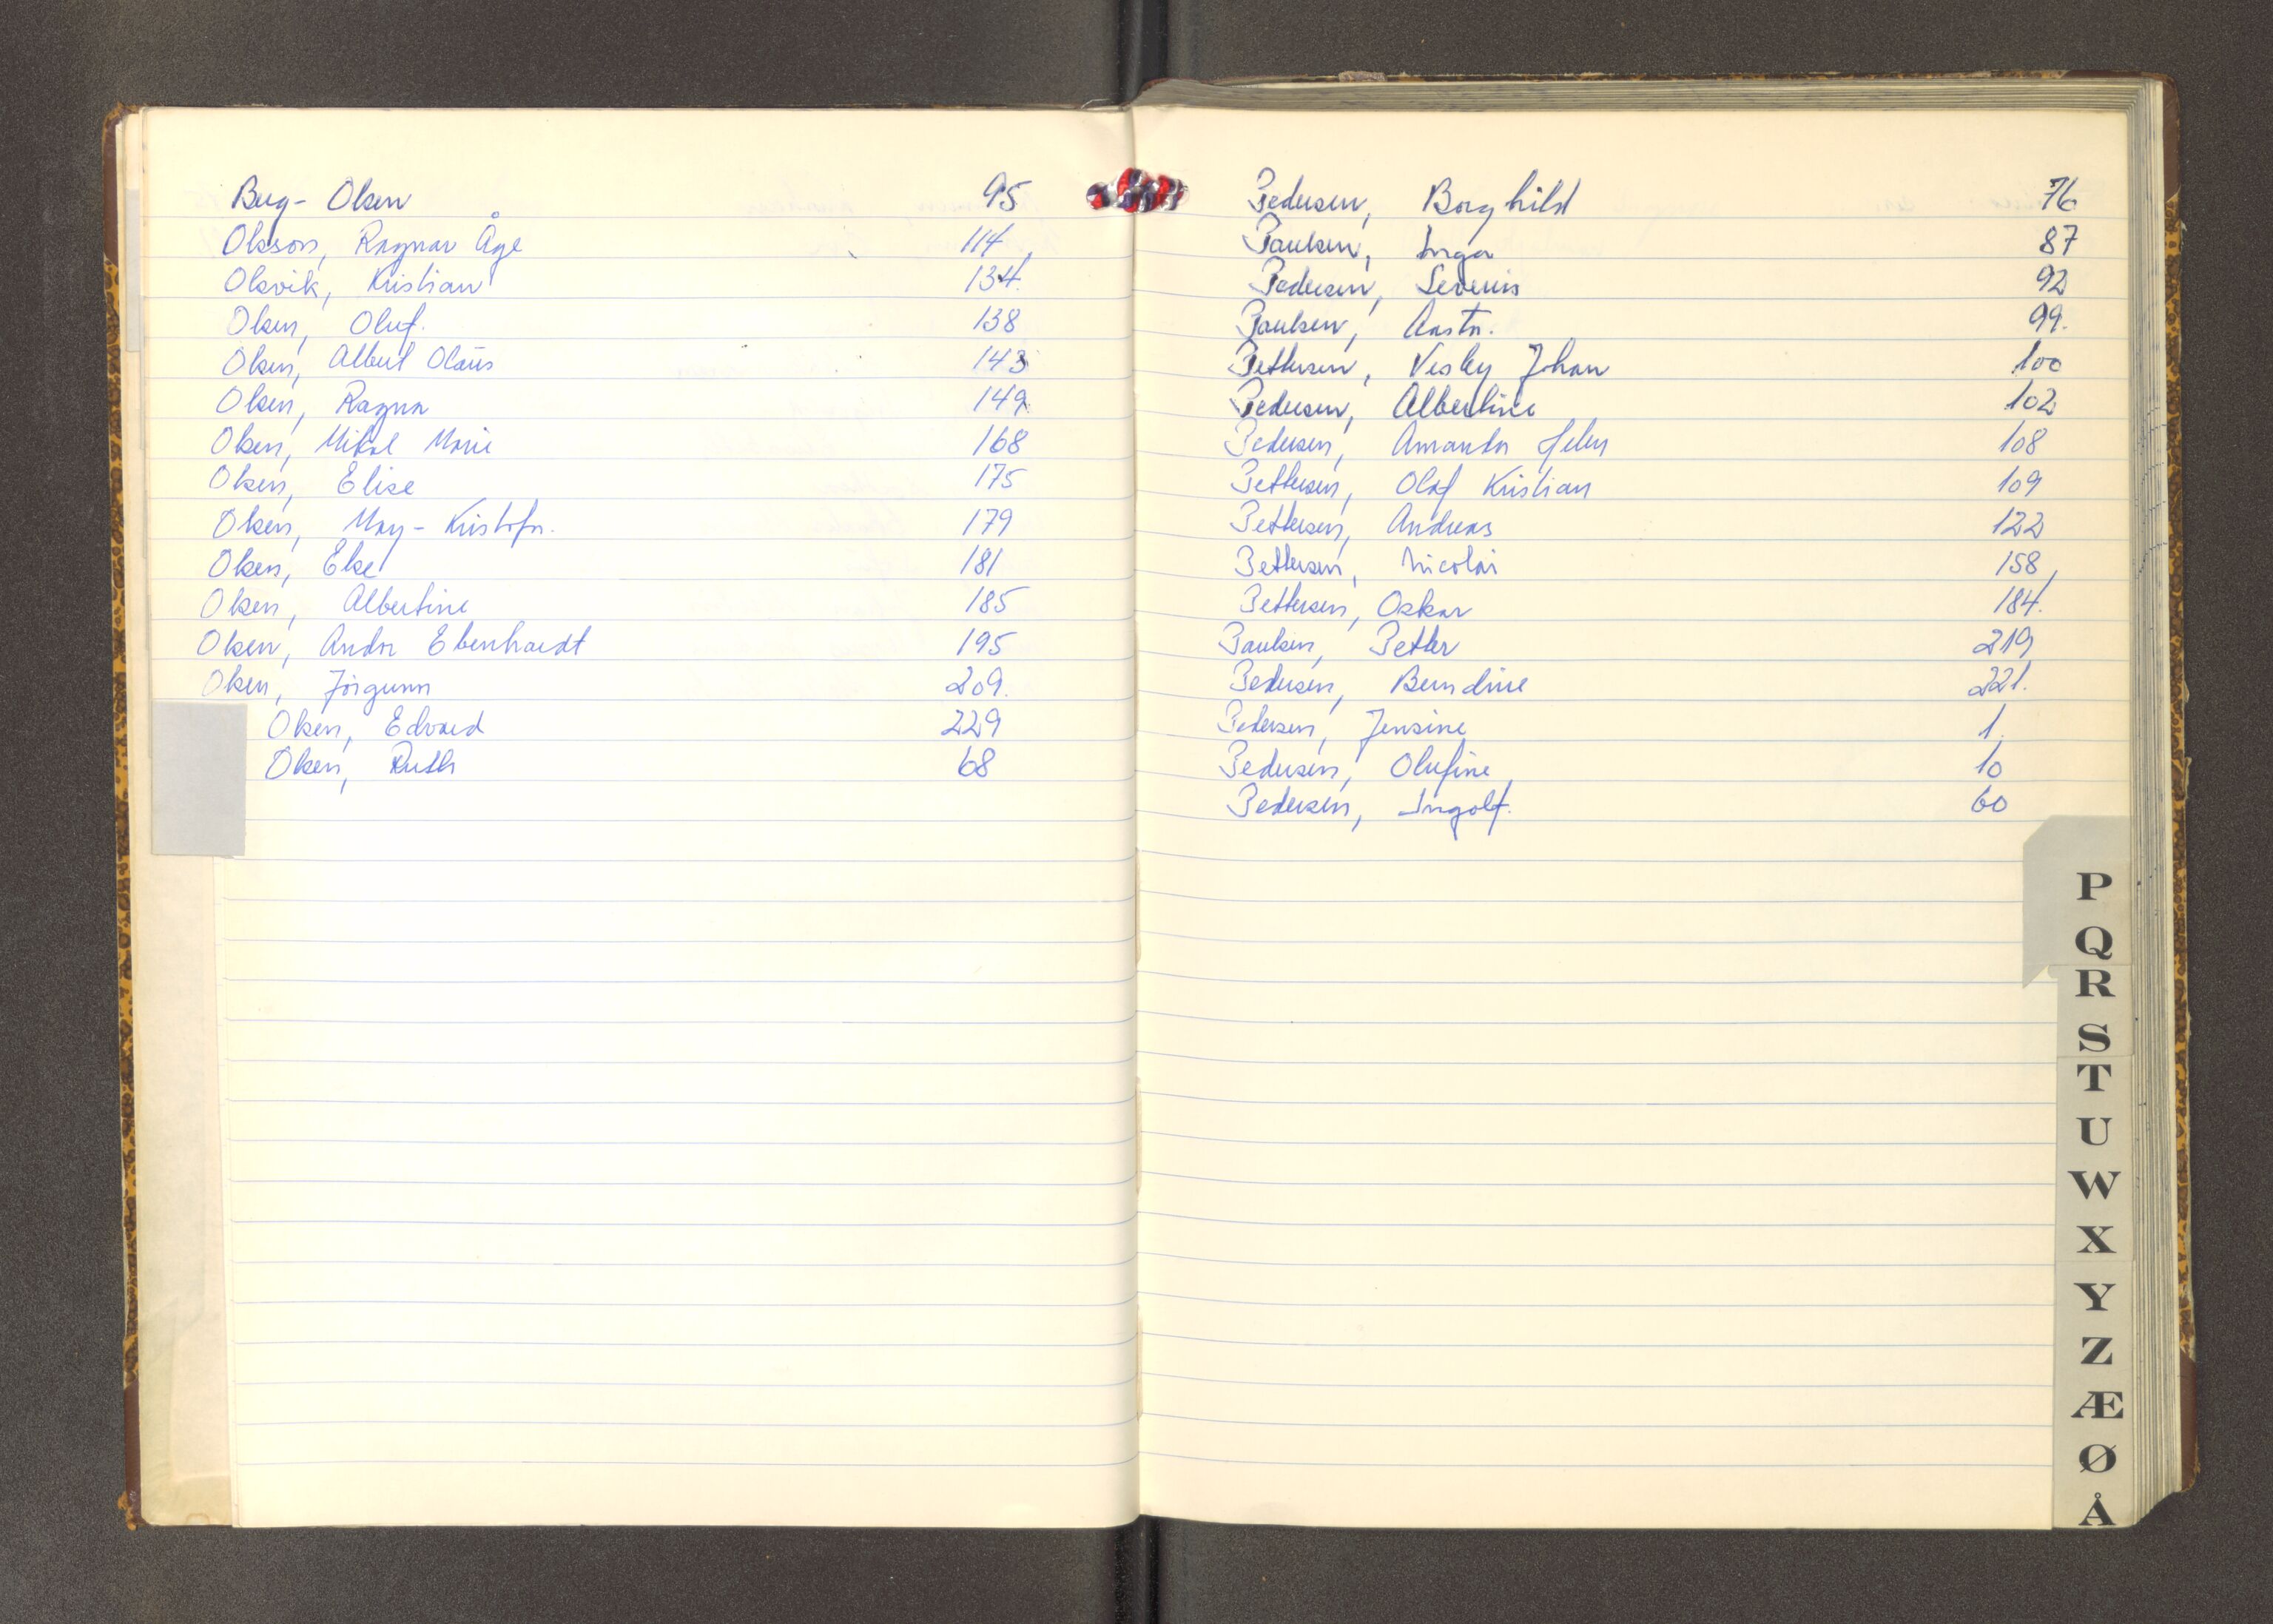 Berg-Olsen 95
Olsson, Ragnar Åge 114
Olsvik, Kristian 134.
Olsen, Oluf. 138
Olsen, Albert Olaus 143
Olsen, Ragna 149
Olsen, Mikal Marie 168
Olsen, Elise 175
Olsen, May-Kristofa. 179
Olsen, Else 181
Olsen, Albertine 185
Olsen, Andor Ebenhardt 195
Olsen, Jorgunn 209.
Olsen, Edvard 229
Olsen, Ruth 68
Pedersen, Borghild 76
Paulsen, Inga 87
Pedersen, Severin 92
Paulsen, Aasta. 99.
Pettersen, Vesley Johan 100
Pedersen, Albertine 102
Pedersen, Amanda Helen 108
Pettersen, Olaf Kristian 109
Pettersen, Andreas 122
Pettersen, Nicolai 158
Pettersen, Oskar 184.
Paulsen, Petter 219
Pedersen, Berndine 221.
Pedersen, Jensine 1.
Pedersen, Olufine 10
Pedersen, Ingolf. 60
P
Q
R
S
T
U
W
X
Y
Z
Æ
Ø
Å